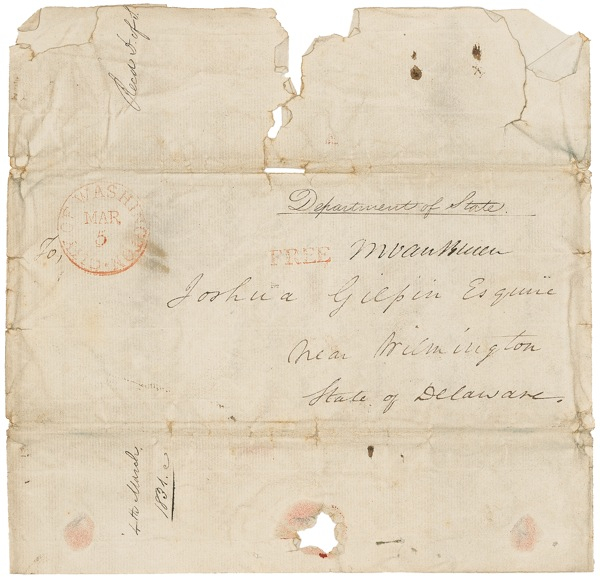 Recd
Department of State.
CITY OF WASHINGTON
MAR
5
FREE
MVanBuren
To,
Joshua Gilpin Esquire
near Wilmington
State of Delaware.
4th March
1831.